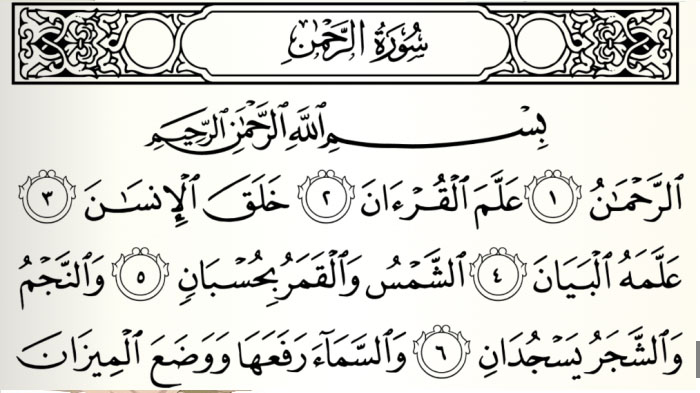 سُورَةُ الرَّحْمٰن
بِسْمِ ٱللَّهِ ٱلرَّحْمَٰنِ ٱلرَّحِيمِ
ٱلرَّحْمَٰنُ ١ عَلَّمَ ٱلْقُرْءَانَ ٢ خَلَقَ ٱلْإِنسَٰنَ ٣
عَلَّمَهُ ٱلْبَيَانَ ٤ ٱلشَّمْسُ وَٱلْقَمَرُ بِحُسْبَانٍ ٥ وَٱلنَّجْمُ
وَٱلشَّجَرُ يَسْجُدَانِ ٦ وَٱلسَّمَآءَ رَفَعَهَا وَوَضَعَ ٱلْمِيزَانَ